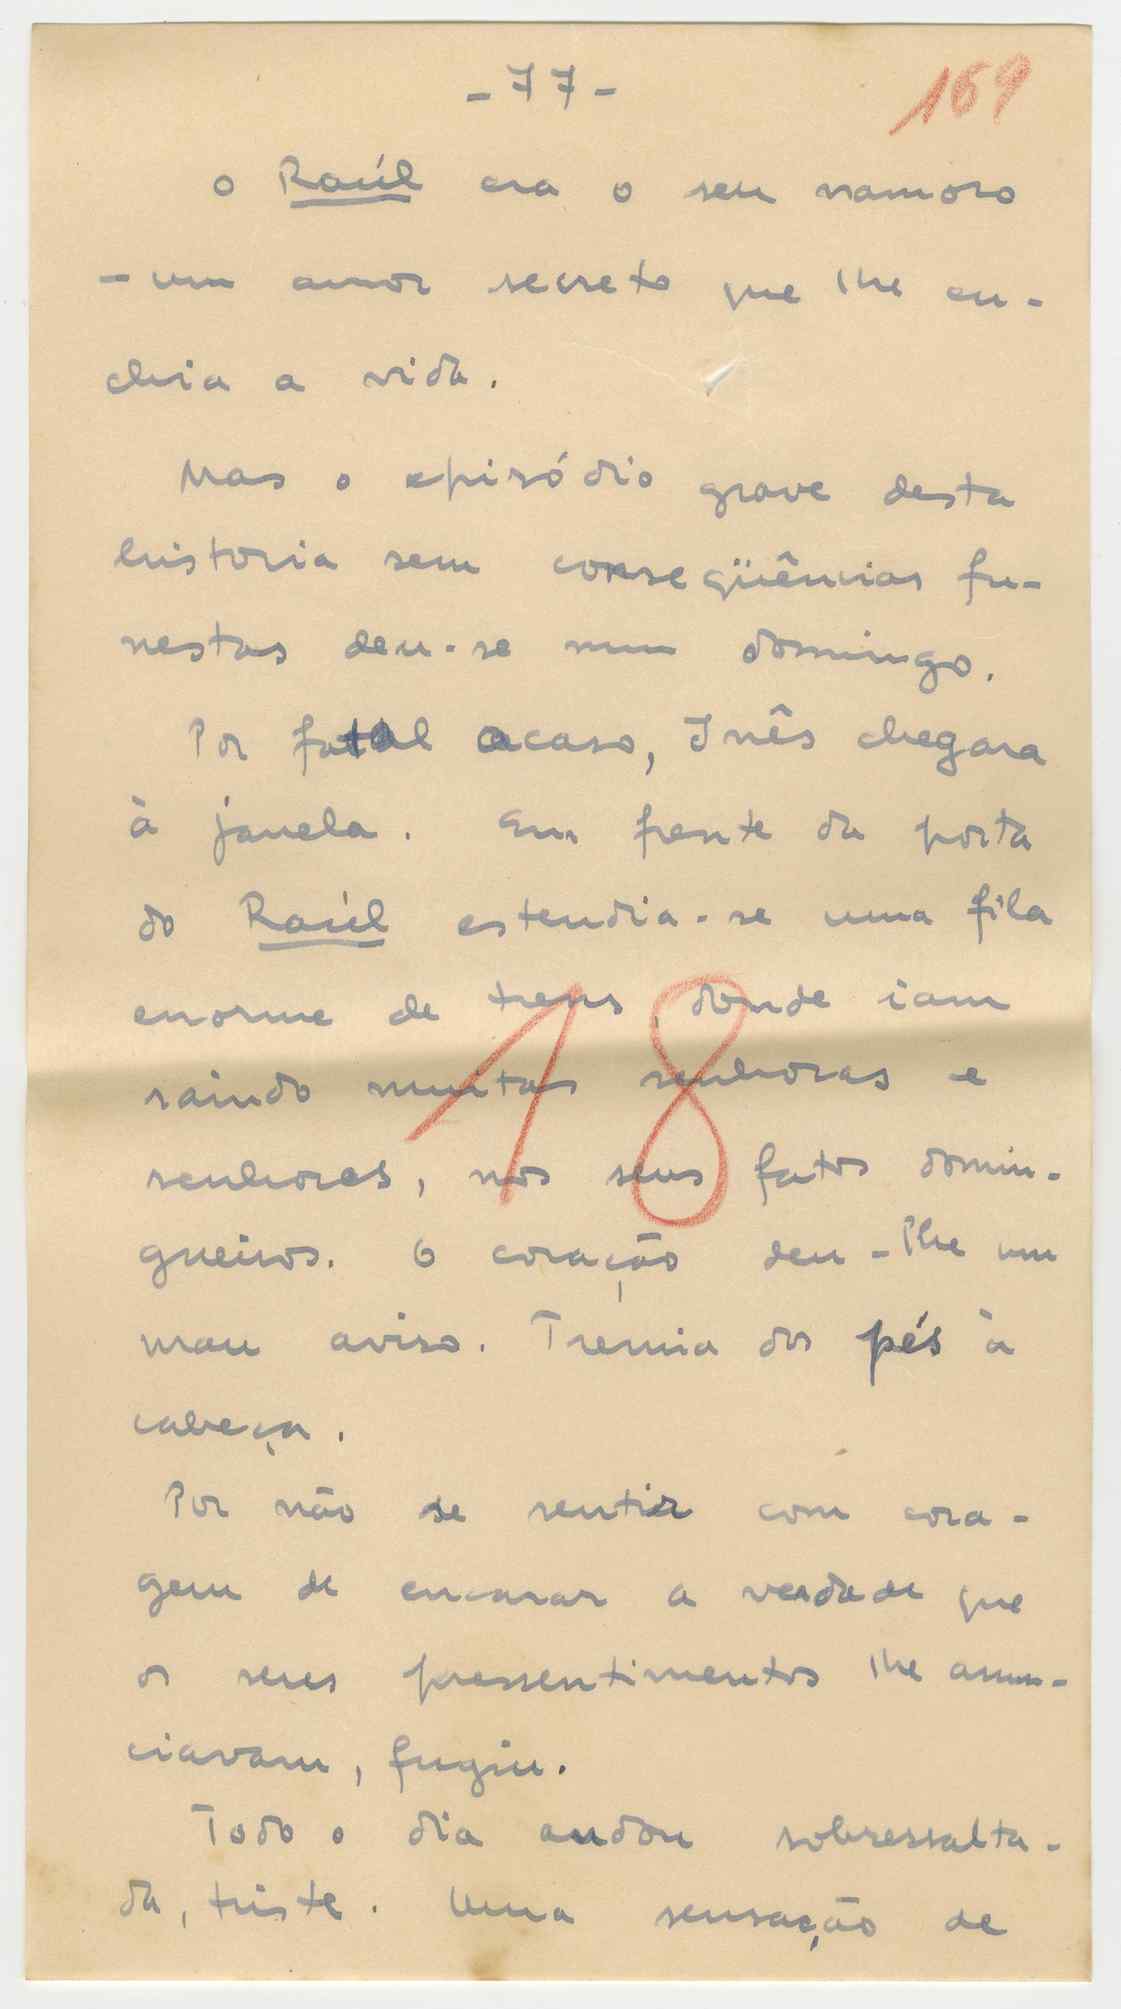 - 77 -
169
O Raúl era o seu namoro
- um amor secreto que lhe en-
chia a vida.
Mas o episódio grave desta
historia sem conseqüências fu-
nestas deu-se num domingo.
Por fatal acaso, Inês chegara
à janela. Em frente da porta
do Raúl estendia-se uma fila
enorme de trens, donde iam
saindo muitas senhoras e
senhores, nos seus fatos domin-
18
gueiros. O coração deu-lhe um
mau aviso. Tremia dos pés à
cabeça.
Por não se sentir com cora-
gem de encarar a verdade que
os seus pressentimentos lhe anun-
ciavam, fugiu.
Todo o dia andou sobressalta-
da, triste. Uma sensação de